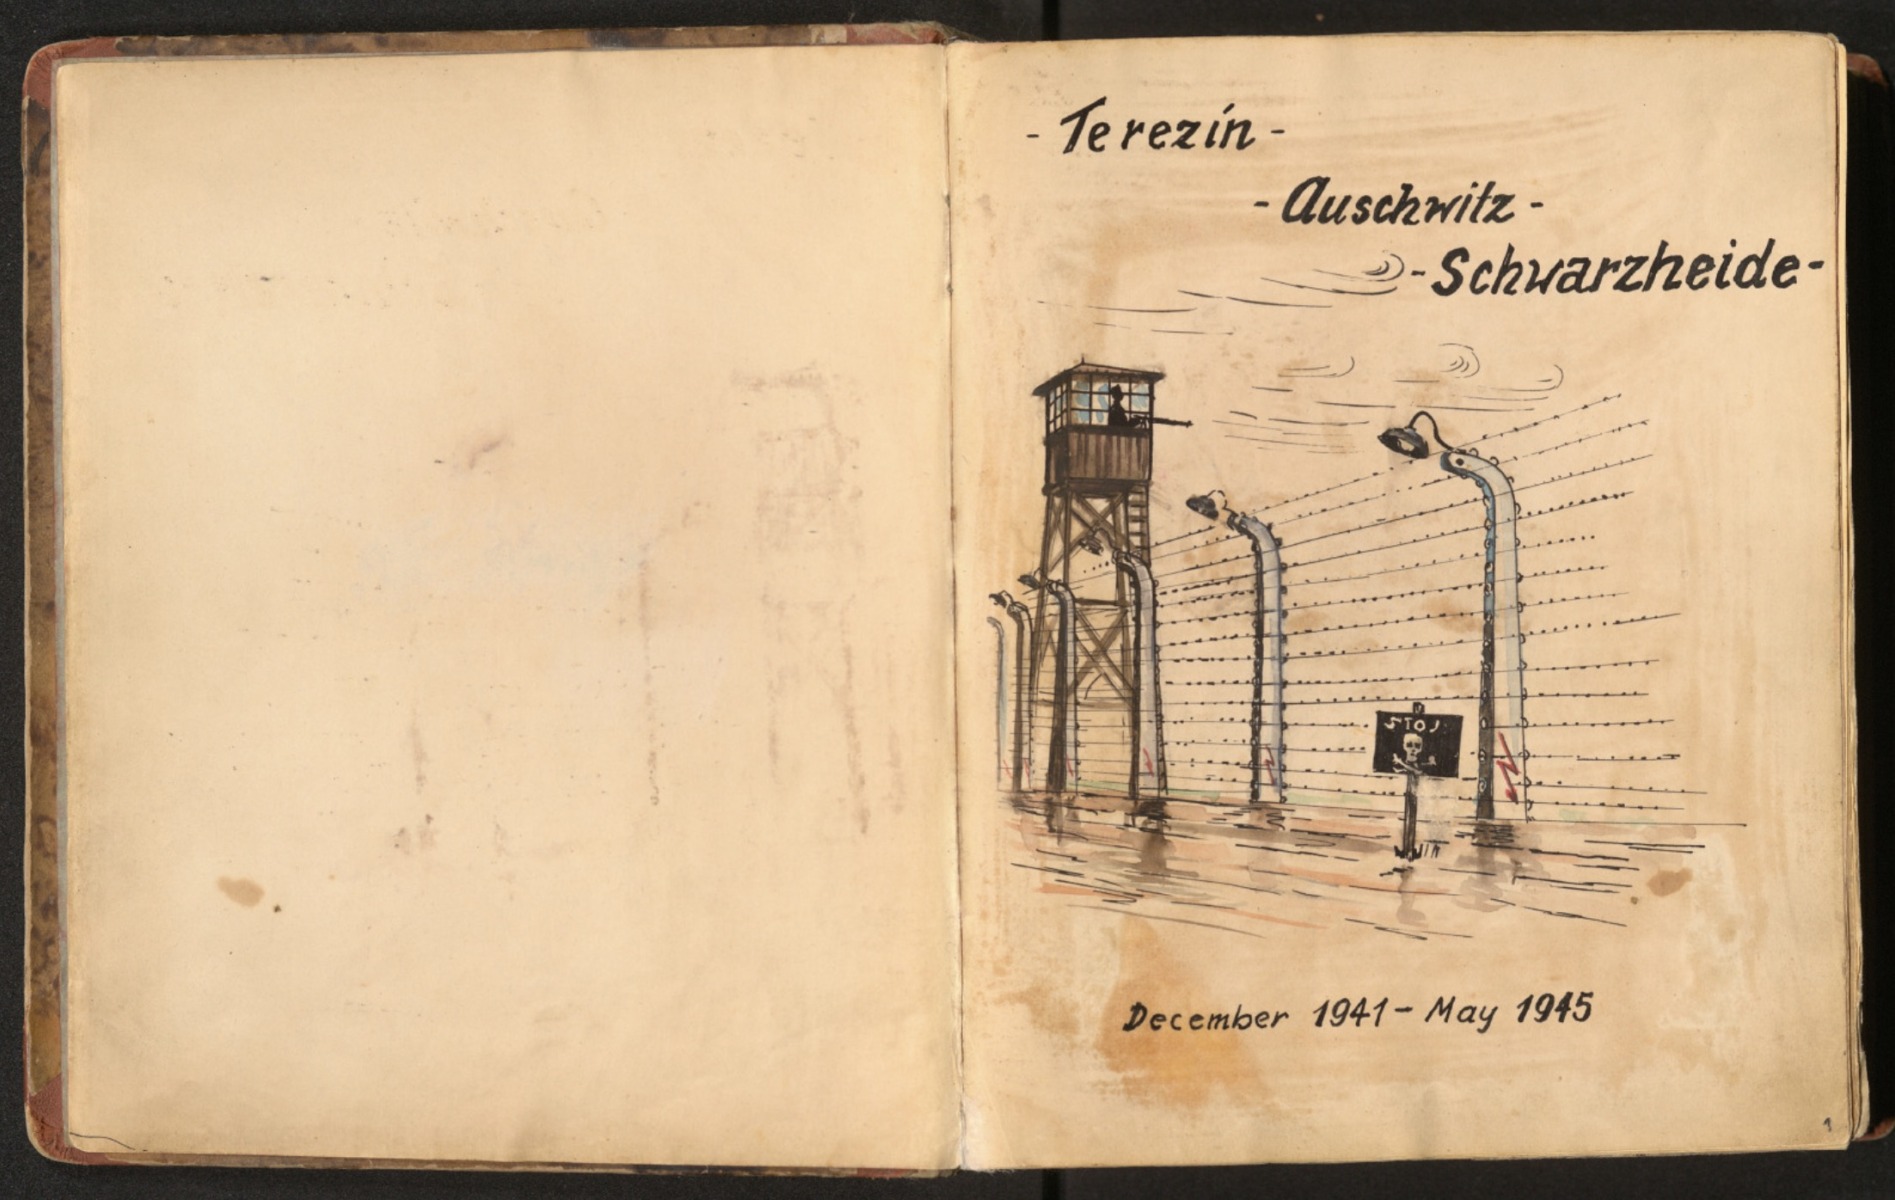 - Terezín -
- Auschwitz -
- Schwarzheide -
STOJ
December 1941 - May 1945
1